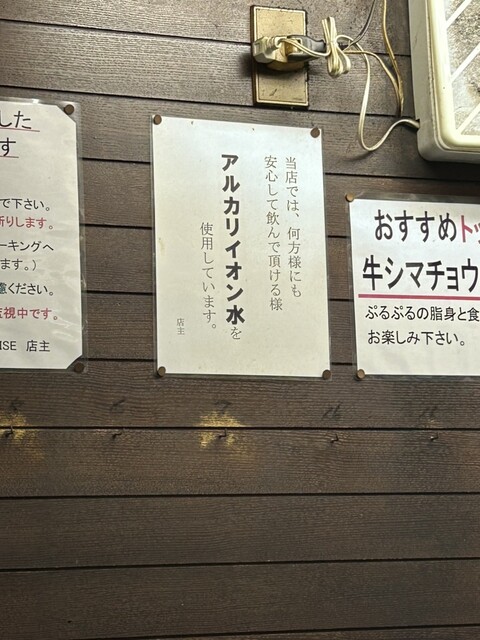 した
す
で下さい。
祈りします。
ーキングへ
ます。）
慮ください。
監視中です。
ISE 店主
当店では、何方様にも
安心して飲んで頂ける様
アルカリイオン水を
使用しています。
店主
おすすめトッ
牛シマチョウ
ぷるぷるの脂身と食
お楽しみ下さい。